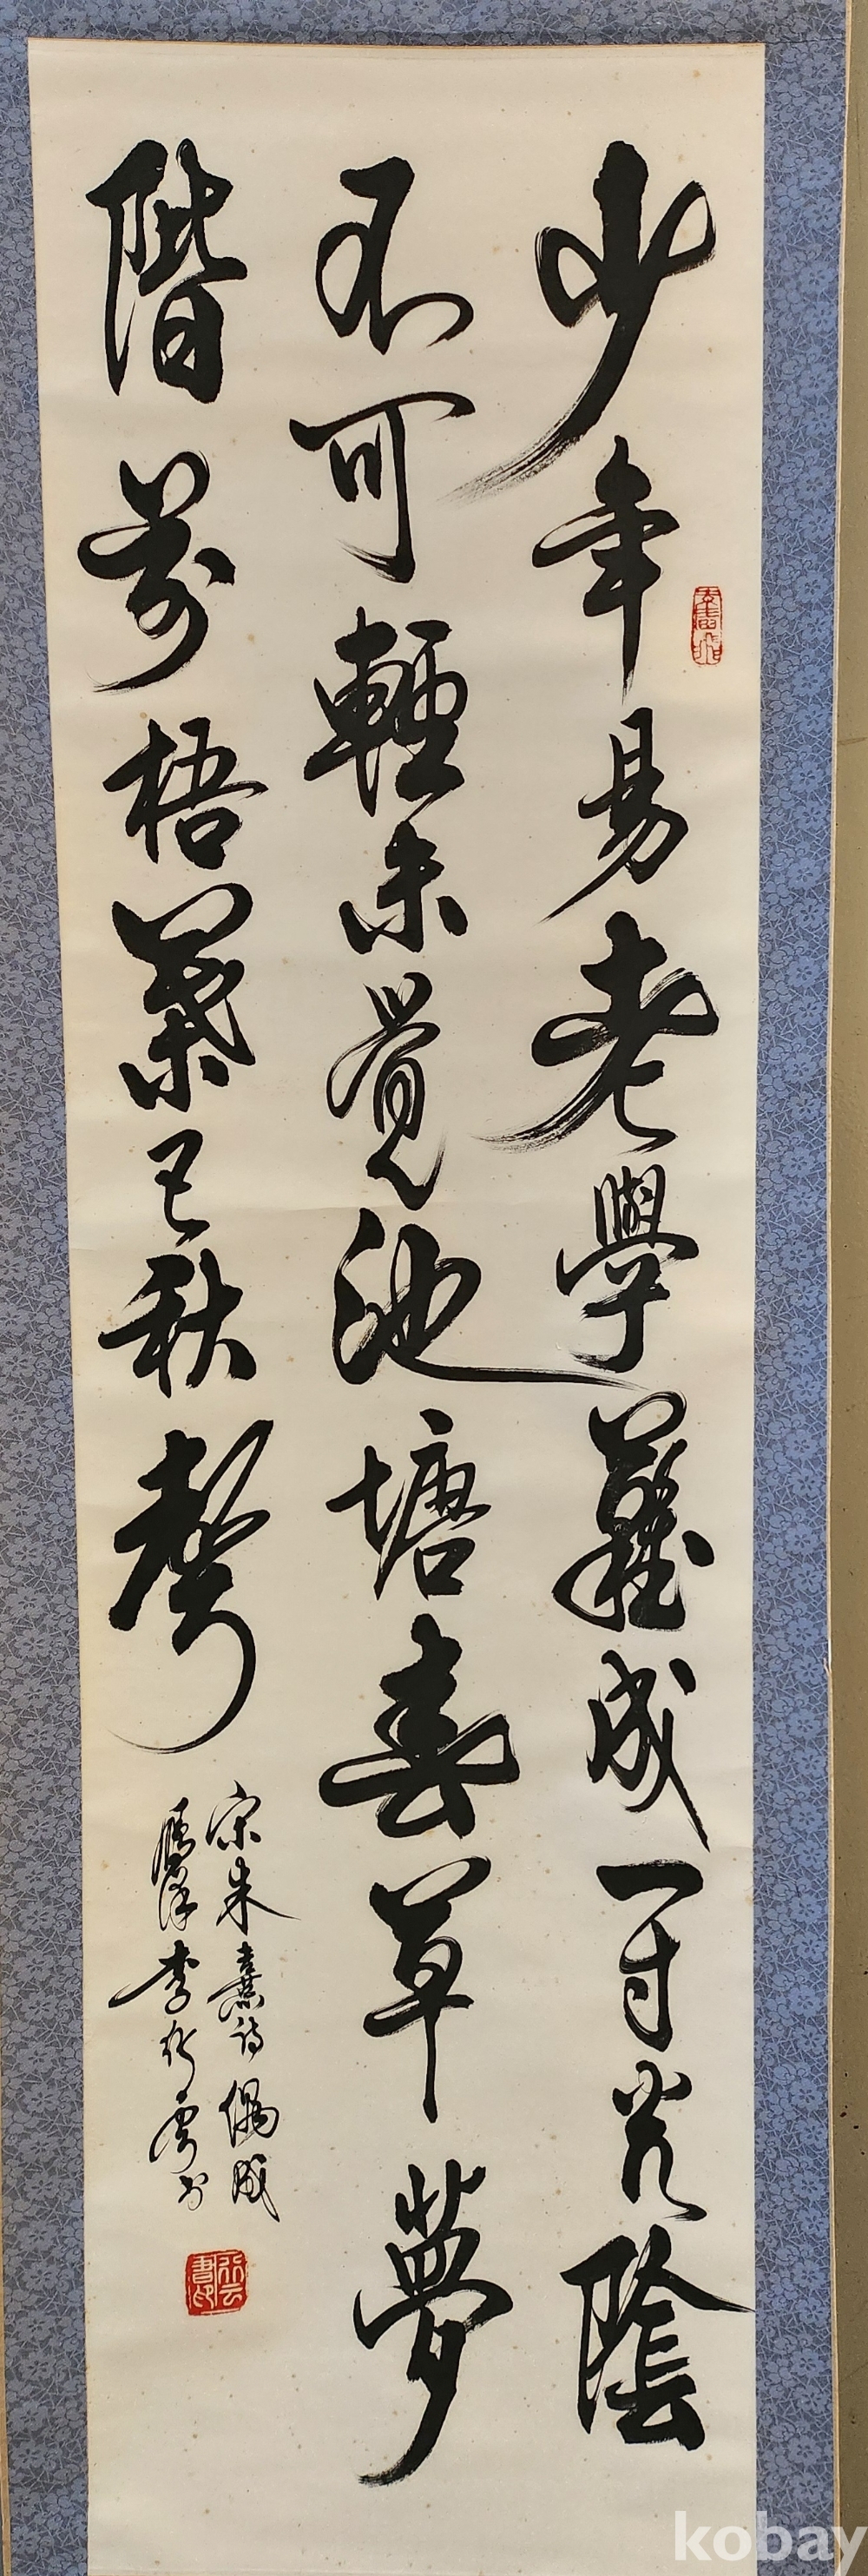 少年易老學難成一寸光陰
不可輕未覺池塘春草夢
階前梧葉已秋聲
宋朱熹詩偶成
李行雲書
kobay